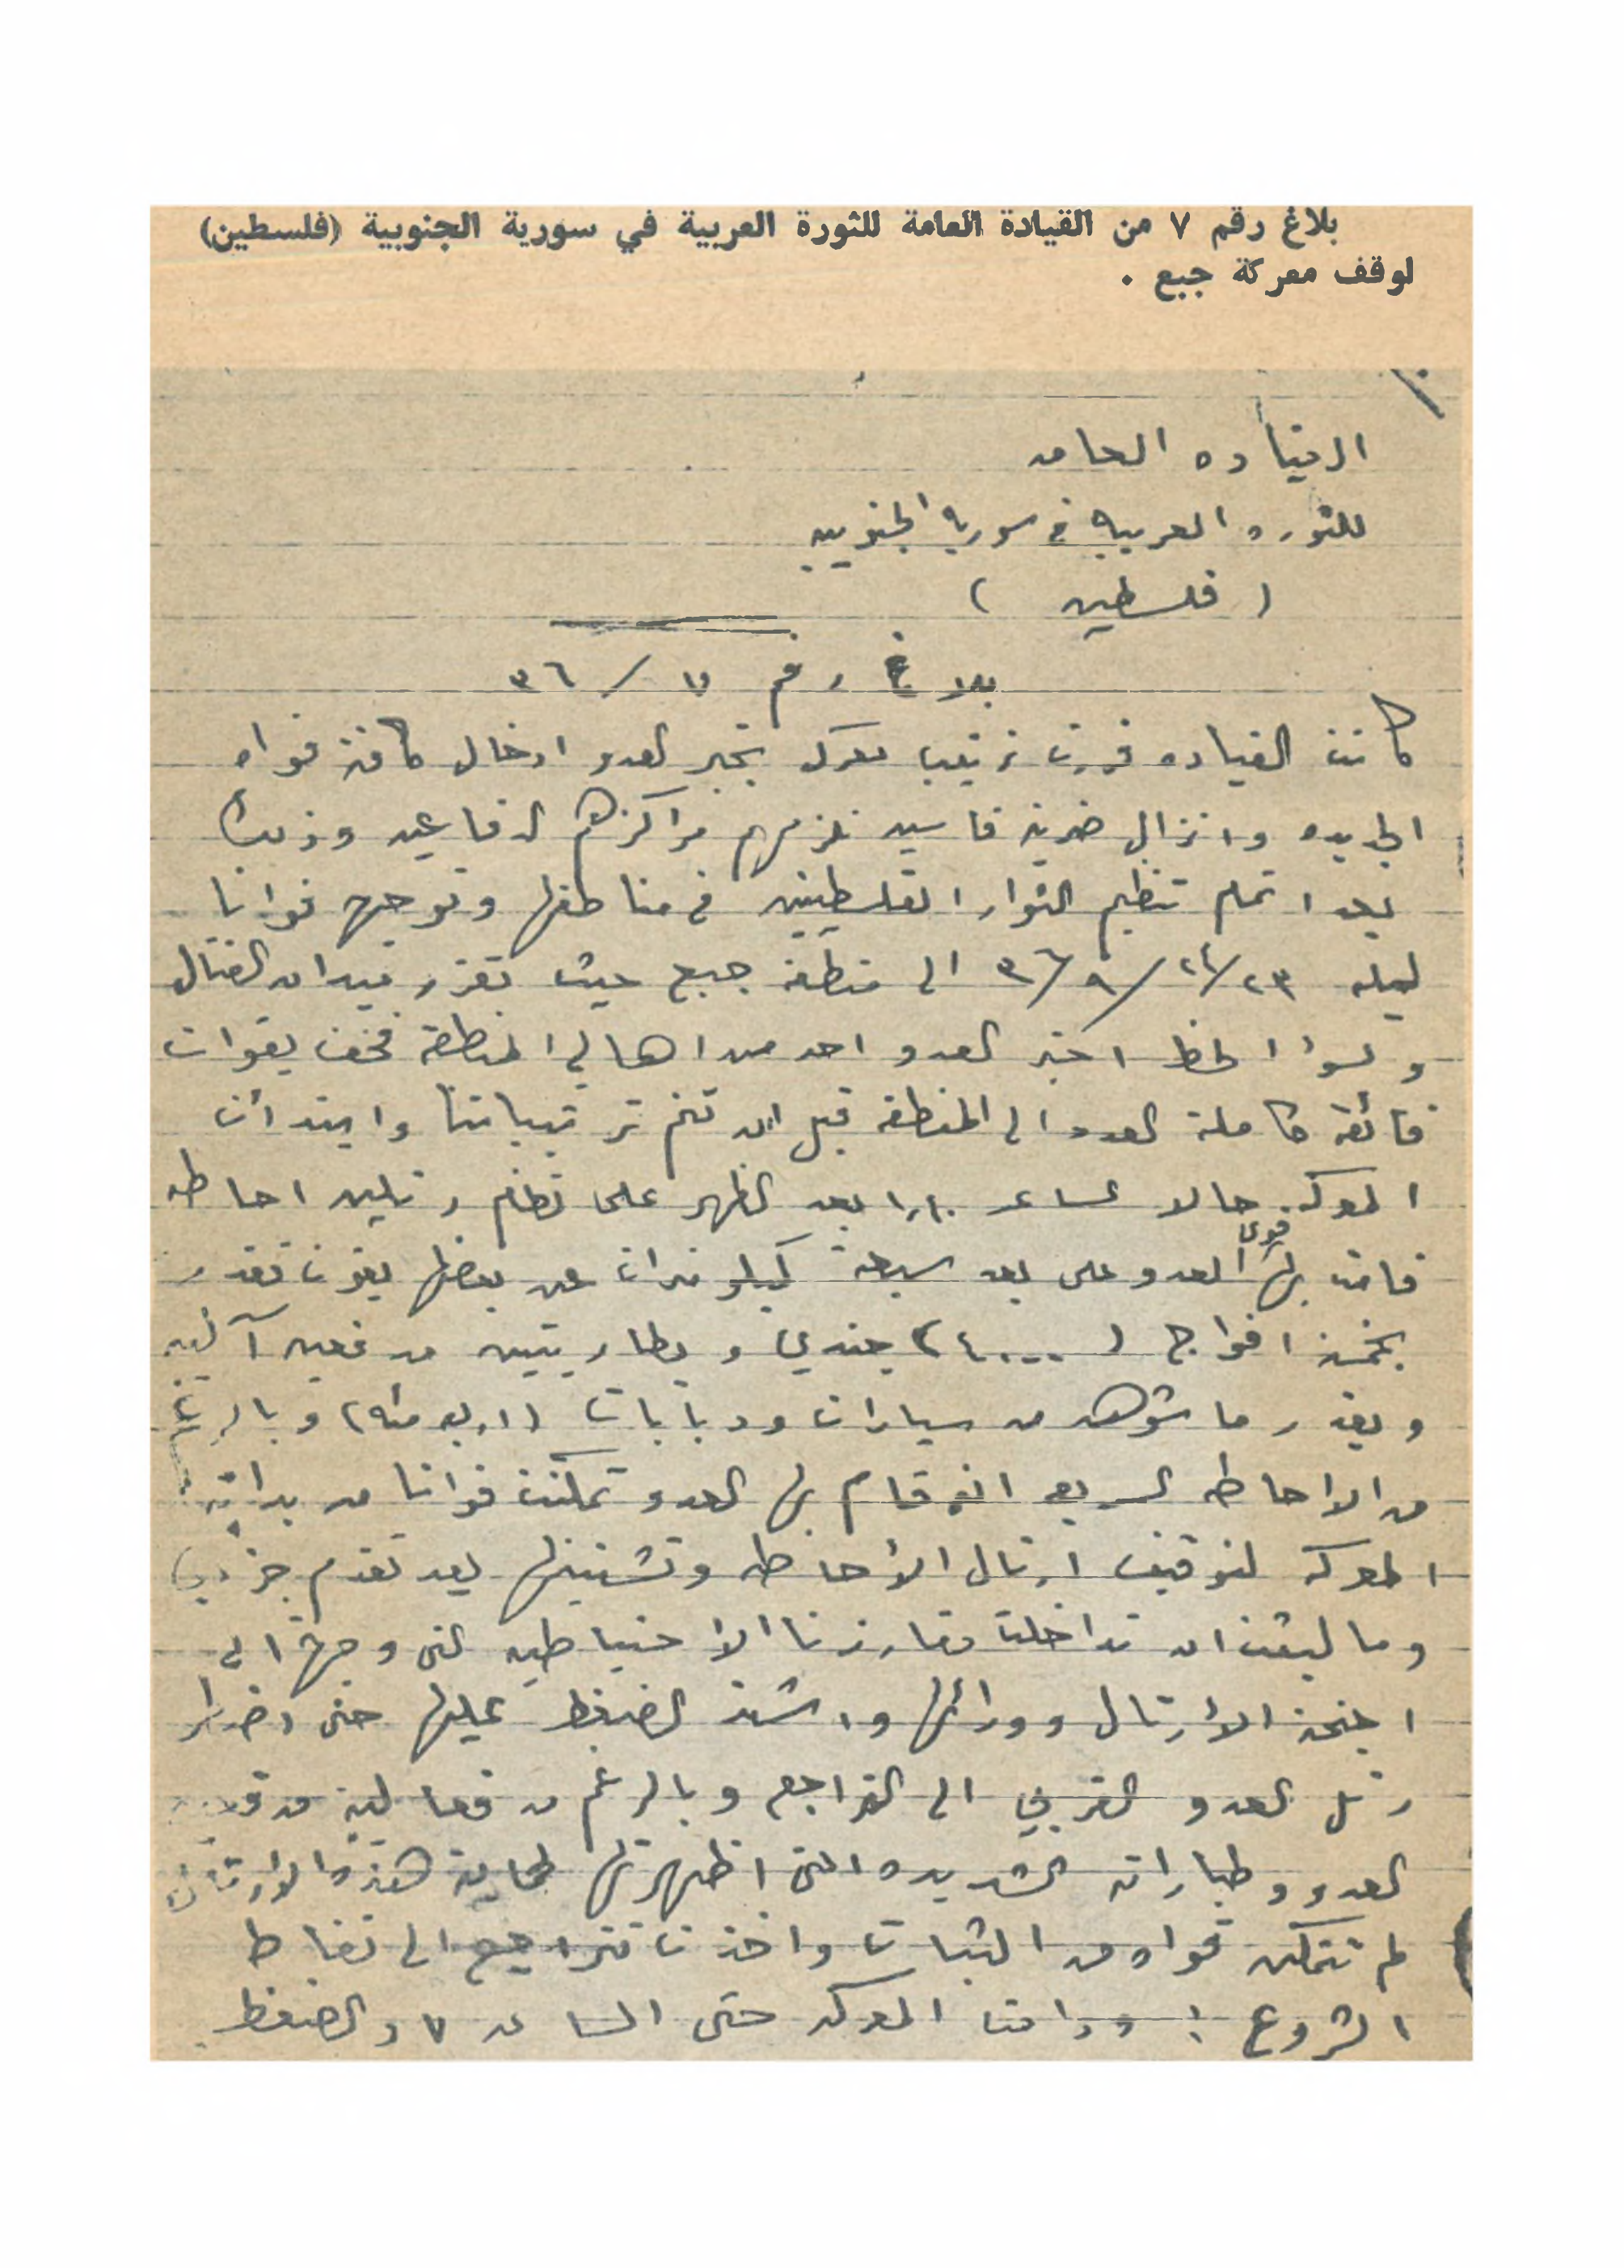 بلاغ رقم ٧ من القيادة العامة للثورة العربية في سورية الجنوبية (فلسطين)
لوقف معركة جبع .
القياده العامه
للثوره العربيه في سوريا الجنوبيه
( فلسطين )
بلاغ رقم ٧ / ٣٦
كانت القياده قررت ترتيب معركه تجبر العدو ادخال كافة قواه
الجديده وانزال ضربة قاسيه تلزمهم مراكزهم الدفاعيه وذلك
بعد اتمام تنظيم الثوار الفلسطينيين في مناطقها وتوجهت قواتنا
ليله ٢٣/٢٤/٩/٣٦ الى منطقة جبع حيث تقرر ميدان القتال
ولسوء الحظ اخبر العدو احد من اهالي المنطقة فخف بقوات
فائقة كاملة العدد الى المنطقة قبل ان تتم ترتيباتنا وابتدأت
المعركه حالا الساعه ١٠،١ بعد الظهر على نظام رتلين احاطه
قامت بها قوى العدو على بعد سبعة كيلو مترات عن بعضها بقوات تقدر
بخمسة افواج (٤٠٠٠) جندي وبطاريتين مدفعيه آليه
وبقدر ما شوهد من سيارات ودبابات (اربع مئه) وبالرغم
من الاحاطه السريعه التي قام بها العدو تمكنت قواتنا من بداية
المعركه لتوقيف ارتال الأحاطه وتشتيتها بعد تقدم جزئي
وما لبثت ان تداخلت مفارزنا الاحتياطيه التي وجهت الى
اجنحة الأرتال وورائها واشتد الضغط عليها حتى اضطر
رتل العدو الغربي الى التراجع وبالرغم من فعالية مدفعية
العدو وطياراته الشديده التي اظهرتها لحماية هذه الأرتال
لم تتمكن قواه من الثبات واخذت تتراجع الى نقاط
الشروع ! ودامت المعركه حتى الساعه ٧ والضغط